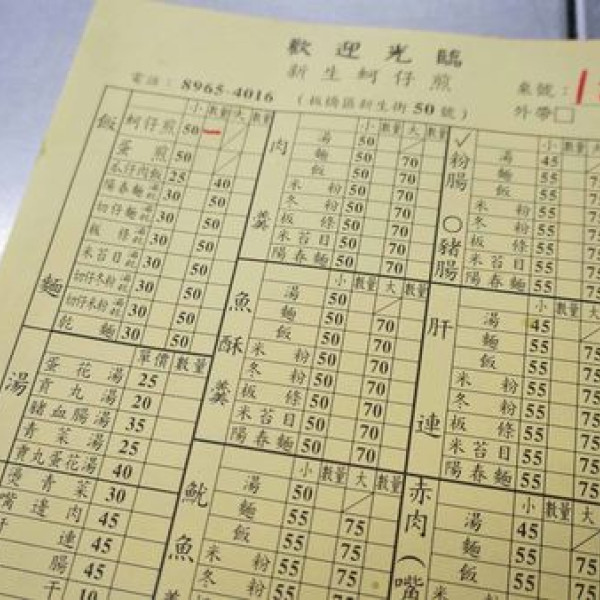 歡迎光臨
新生蚵仔煎
電話：8965-4016 （板橋區新生街50號）
桌號：
外帶□
飯 麵
小 數量 大 數量
蚵仔煎 50
蛋煎 50
爪仔肉飯 25 40
陽春麵 湯乾 30 50
切仔麵 湯乾 30 50
板條 湯乾 30 50
米苔目 湯乾 30 50
切仔冬粉 湯乾 30 50
切仔米粉 湯乾 30 50
乾麵 30 50
湯
單價 數量
蛋花湯 25
貢丸湯 20
豬血腸湯 35
青菜湯 25
貢丸蛋花湯 40
燙青菜 30
嘴邊肉 45
肝連 45
腸 45
干 10
肉羹
小 數量 大 數量
湯 50
麵 50 70
飯 50 70
米粉 50 70
冬粉 50 70
板條 50 70
米苔目 50 70
陽春麵 50 70
魚酥羹
小 數量 大 數量
湯 50
麵 50 70
飯 50 70
米粉 50 70
冬粉 50 70
板條 50 70
米苔目 50 70
陽春麵 50 70
魷魚羹
小 數量 大 數量
湯 50
麵 55 75
飯 55 75
米粉 55 75
冬粉 55 75
✓粉腸 ○豬腸
小 數量 大 數量
湯 45
麵 55 75
飯 55 75
米粉 55 75
冬粉 55 75
板條 55 75
米苔目 55 75
陽春麵 55 75
肝連
小 數量 大 數量
湯 45
麵 55 75
飯 55 75
米粉 55 75
冬粉 55 75
板條 55 75
米苔目 55 75
陽春麵 55 75
赤肉（嘴
小 數量 大
湯 45
麵 55 75
飯 55 75
米粉 55